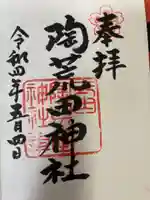 奉拝
陶荒田神社
令和四年五月四日